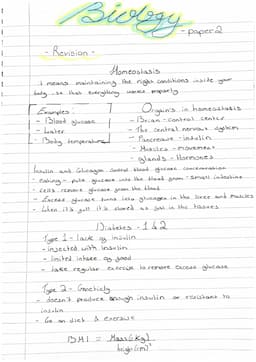 Biology
- paper 2
- Revision -
Homeostasis
it means maintaining the right conditions inside your
body so that everything works properly
Examples:
- Blood glucose
- Water
- Body temperature
Organs in homeostasis
- Brian - control center
- The central nervous system
- Pancreas - insulin
- Muscles - movement
- glands - Hormones
Insulin and Glucagon control blood glucose concentration
- Eating - puts glucose into the blood from small intestine
- Cells remove glucose from the blood
- Excess glucose turns into glycogen in the liver and muscles
- When it's full it's stored as fat in the tissues
Diabetes - 1 & 2
Type 1 - lack of insulin
- injected with insulin
- limited intake of food
- take regular exercise to remove excess glucose
Type 2 -
- doesn't produce enough insulin or resistant to
insulin
- Go on diet & exercise
BMI = Mass (kg)
high (m)²